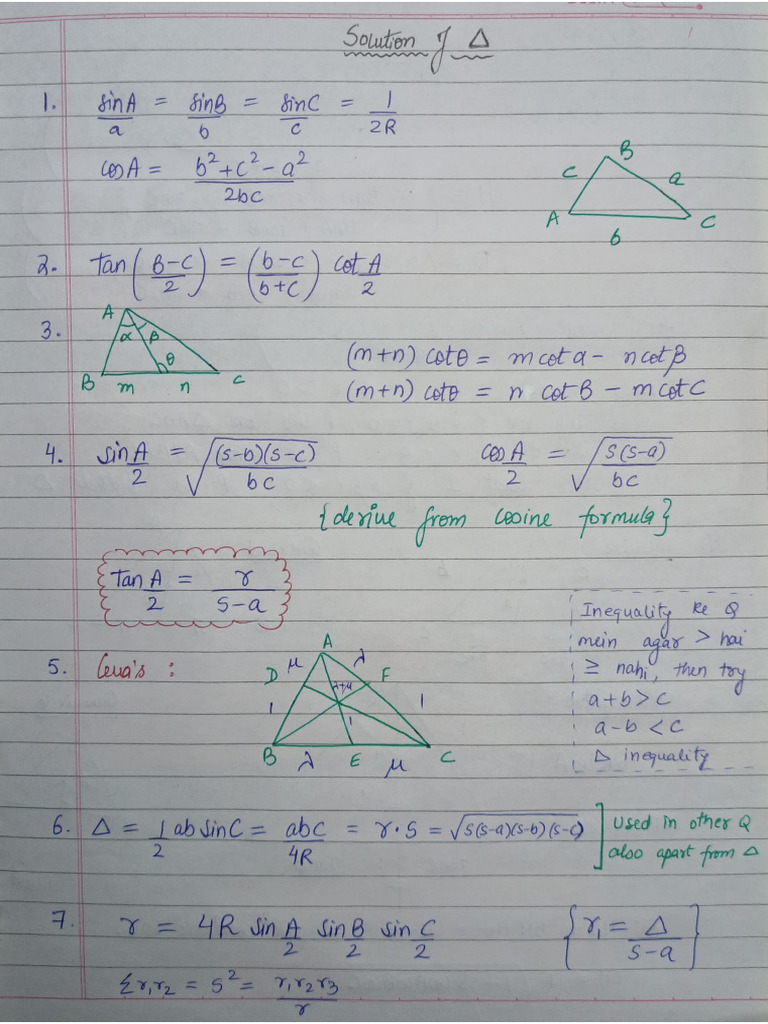 Solution of Δ
1. sinA/a = sinB/b = sinC/c = 1/2R
cosA = b²+c²-a²/2bc
B
c a
A C
b
2. tan(B-C/2) = (b-c/b+c) cot A/2
3. A
α β
θ
B m n C
(m+n) cotθ = m cotα - n cotβ
(m+n) cotθ = n cotB - m cotC
4. sin A/2 = √(s-b)(s-c)/bc cos A/2 = √s(s-a)/bc
{derive from cosine formula}
tan A/2 = r/s-a
Inequality ke Q
mein agar > hai
≥ nahi, then try
a+b>c
a-b<c
Δ inequality
5. Ceva's :
A
μ λ
D F
λ+μ
1 1 1
B λ E μ C
6. Δ = 1/2 ab sinC = abc/4R = r·s = √s(s-a)(s-b)(s-c)
Used in other Q
also apart from Δ
7. r = 4R sin A/2 sin B/2 sin C/2 {r₁ = Δ/s-a}
Σr₁r₂ = s² = r₁r₂r₃/r